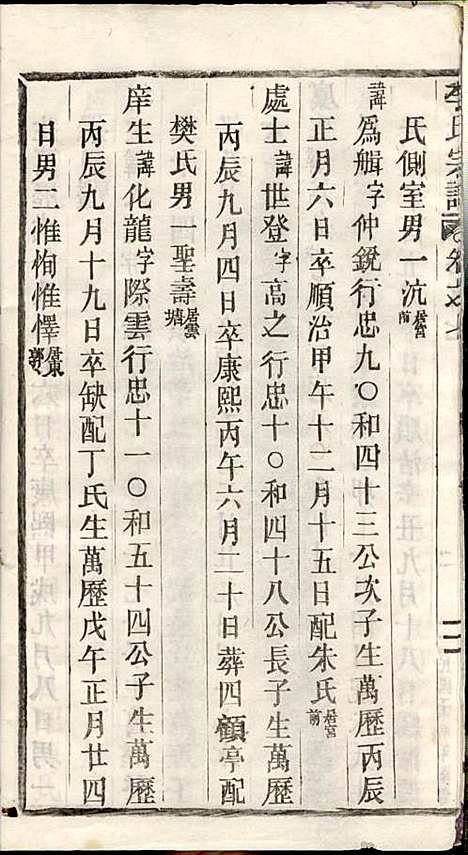 李氏宗譜 卷之七 二
氏側室男一沆居宫前
諱爲艥字仲銳行忠九〇和四十三公次子生萬歷丙辰
正月六日卒順治甲午十二月十五日配朱氏居宫前
處士諱世登字高之行忠十〇和四十八公長子生萬歷
丙辰九月四日卒康熙丙午六月二十日葬四顧亭配
樊氏男一聖壽居巖塘
庠生諱化龍字際雲行忠十一〇和五十四公子生萬歷
丙辰九月十九日卒缺配丁氏生萬歷戊午正月廿四
日男二惟恂惟懌居東